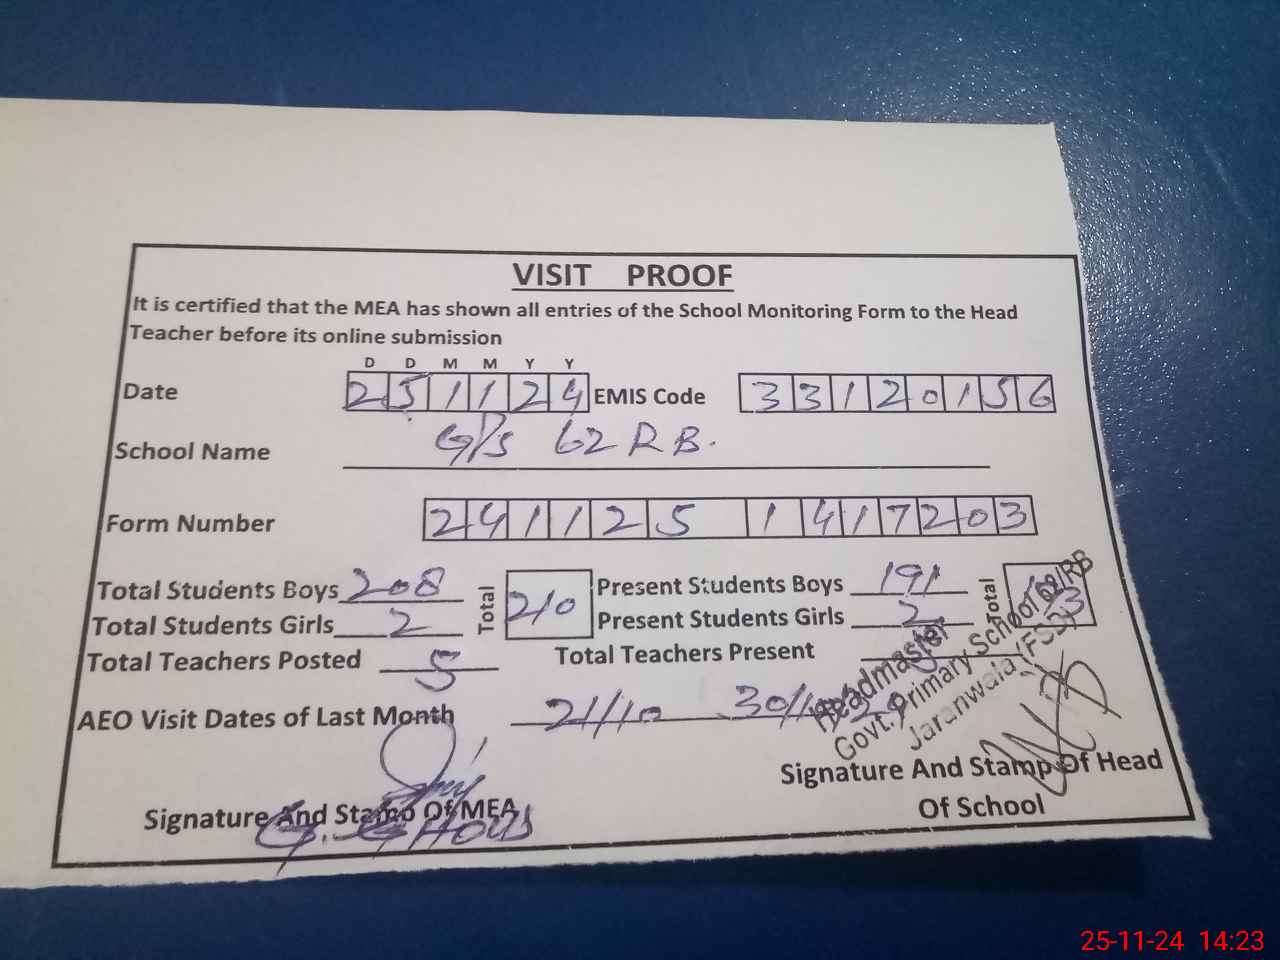 VISIT PROOF
It is certified that the MEA has shown all entries of the School Monitoring Form to the Head
Teacher before its online submission
D D M M Y Y
Date 2 5 1 1 2 4 EMIS Code 3 3 1 2 0 1 5 6
School Name G/P/S 62 RB.
Form Number 2 4 1 1 2 5 1 4 1 7 2 0 3
Total Students Boys 208 Total 210 Present Students Boys 191 Total 193
Total Students Girls 2 Present Students Girls 2
Total Teachers Posted 5 Total Teachers Present
AEO Visit Dates of Last Month 21/10 30/10
Headmaster
Govt. Primary School 62/RB
Jaranwala (FSD)
Signature And Stamp Of MEA
G. GHOUS
Signature And Stamp Of Head
Of School
25-11-24 14:23